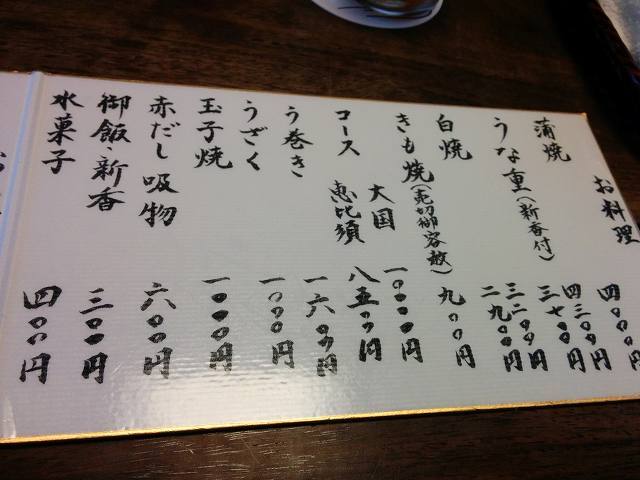 お料理
蒲焼 四〇〇〇円
うな重(新香付) 四三〇〇円
三七〇〇円
三二〇〇円
白焼 二九〇〇円
きも焼(売切御容赦) 九〇〇円
コース 大国 一〇〇〇〇円
恵比須 八五〇〇円
う巻き 一六〇〇円
うざく 一〇〇〇円
玉子焼 一〇〇〇円
赤だし 吸物 六〇〇円
御飯・新香 三〇〇円
水菓子 四〇〇円